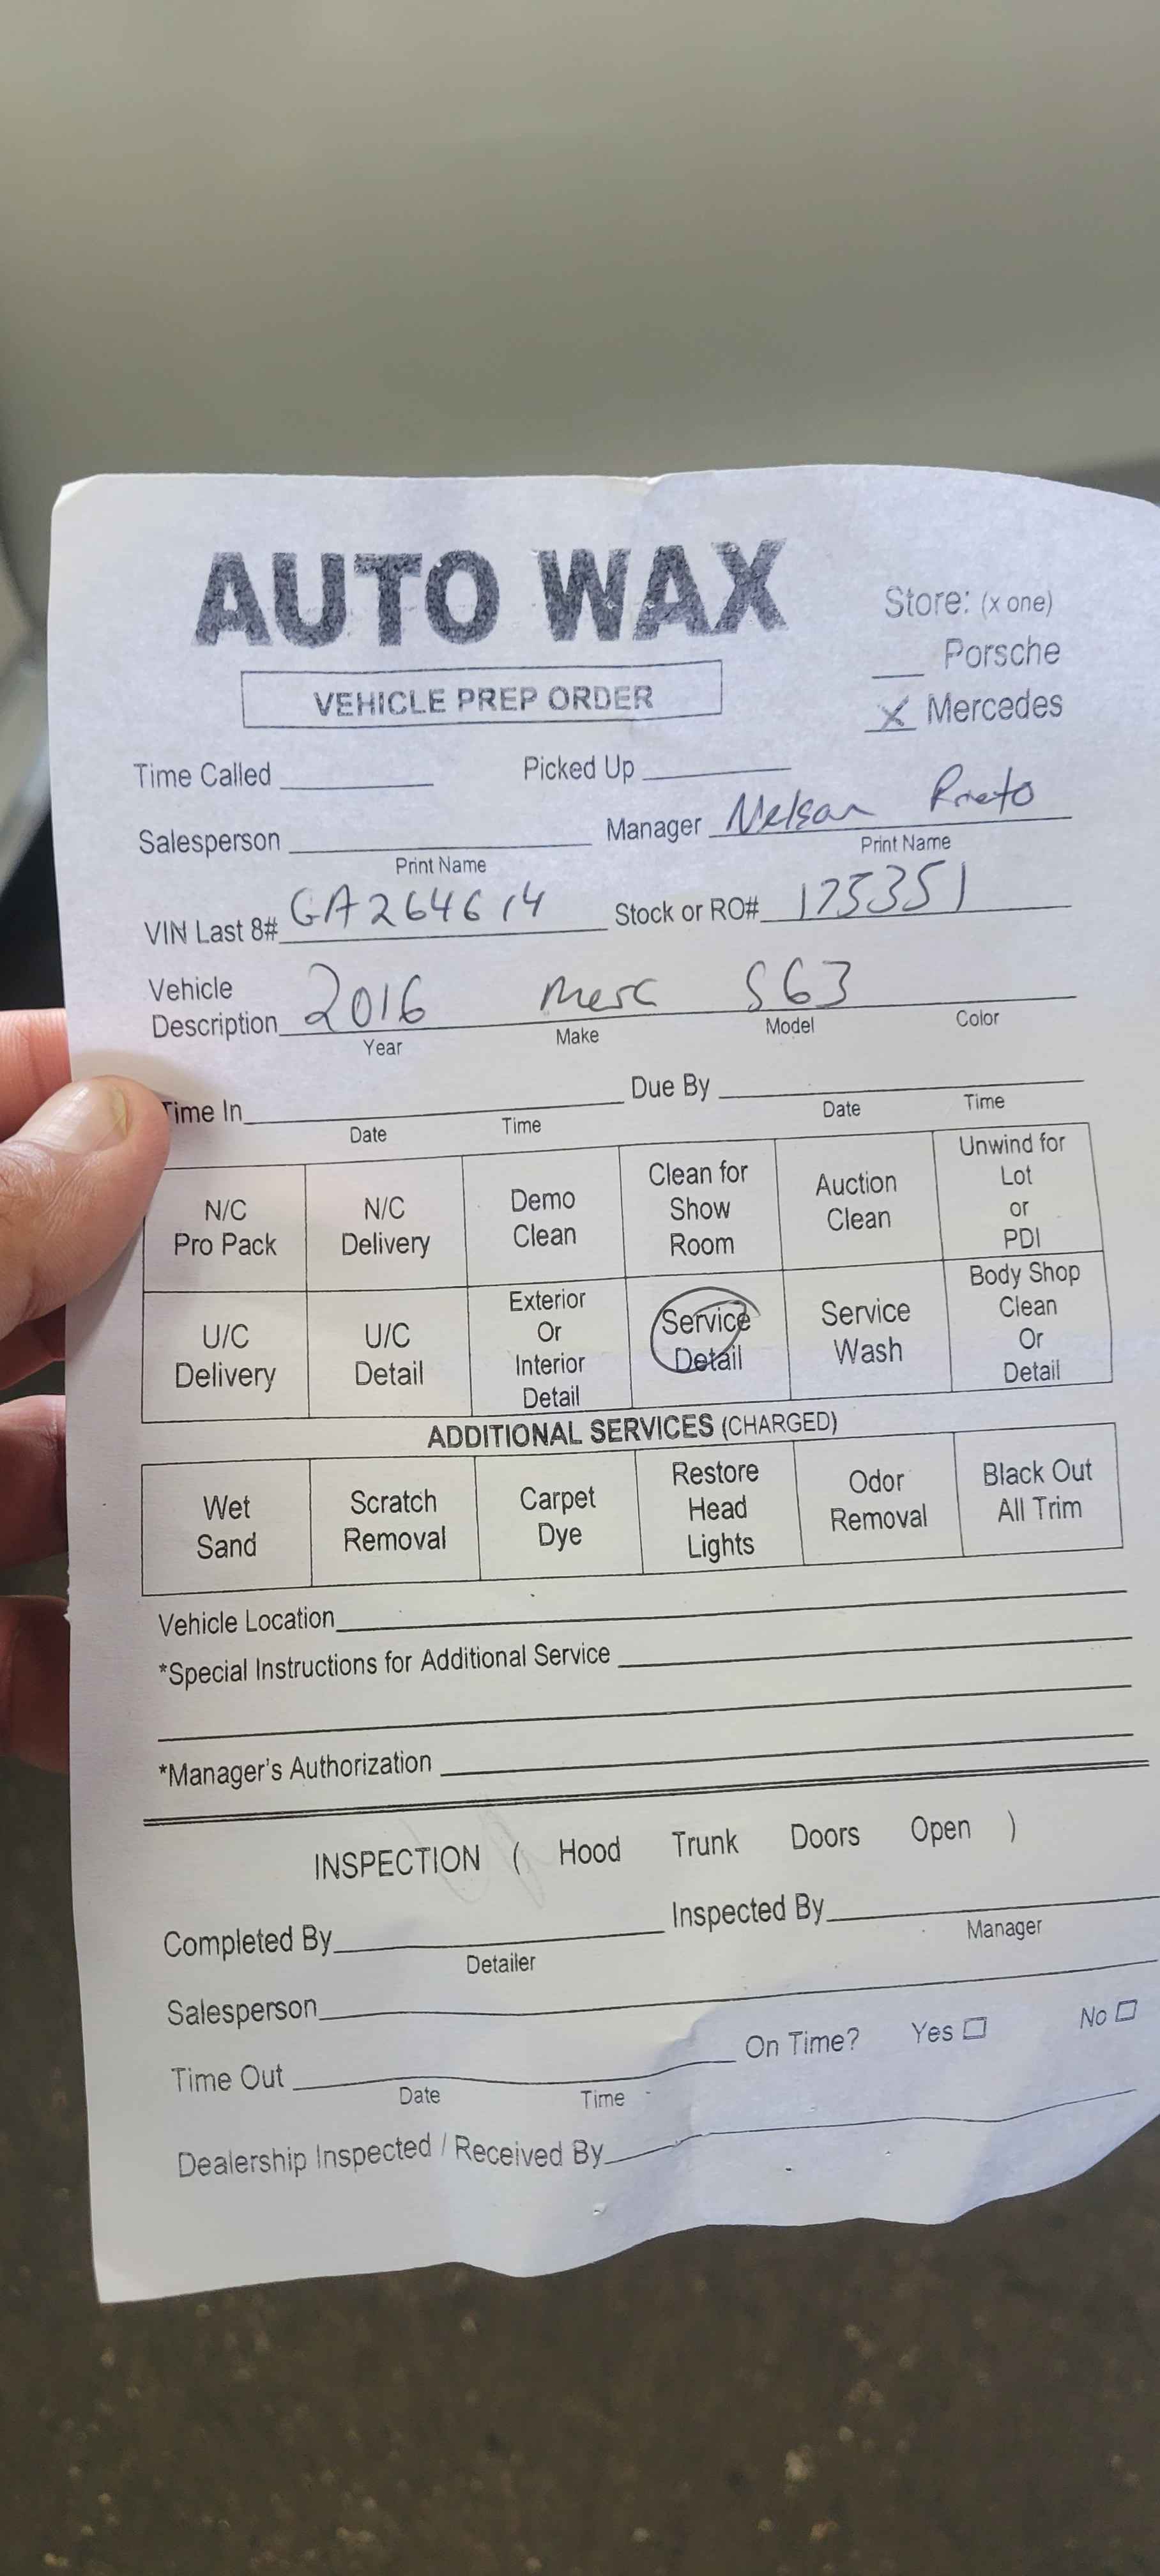 AUTO WAX
Store: (x one)
Porsche
VEHICLE PREP ORDER
X Mercedes
Time Called Picked Up
Salesperson Manager Nelson Prieto
Print Name Print Name
VIN Last 8# GA264614 Stock or RO# 175351
Vehicle
Description 2016 Merc S63
Year Make Model Color
Time In Due By
Date Time Date Time
N/C
Pro Pack
N/C
Delivery
Demo
Clean
Clean for
Show
Room
Auction
Clean
Unwind for
Lot
or
PDI
U/C
Delivery
U/C
Detail
Exterior
Or
Interior
Detail
Service
Detail
Service
Wash
Body Shop
Clean
Or
Detail
ADDITIONAL SERVICES (CHARGED)
Wet
Sand
Scratch
Removal
Carpet
Dye
Restore
Head
Lights
Odor
Removal
Black Out
All Trim
Vehicle Location
*Special Instructions for Additional Service
*Manager's Authorization
INSPECTION ( Hood Trunk Doors Open )
Completed By Inspected By
Detailer Manager
Salesperson
Time Out On Time? Yes No
Date Time
Dealership Inspected / Received By